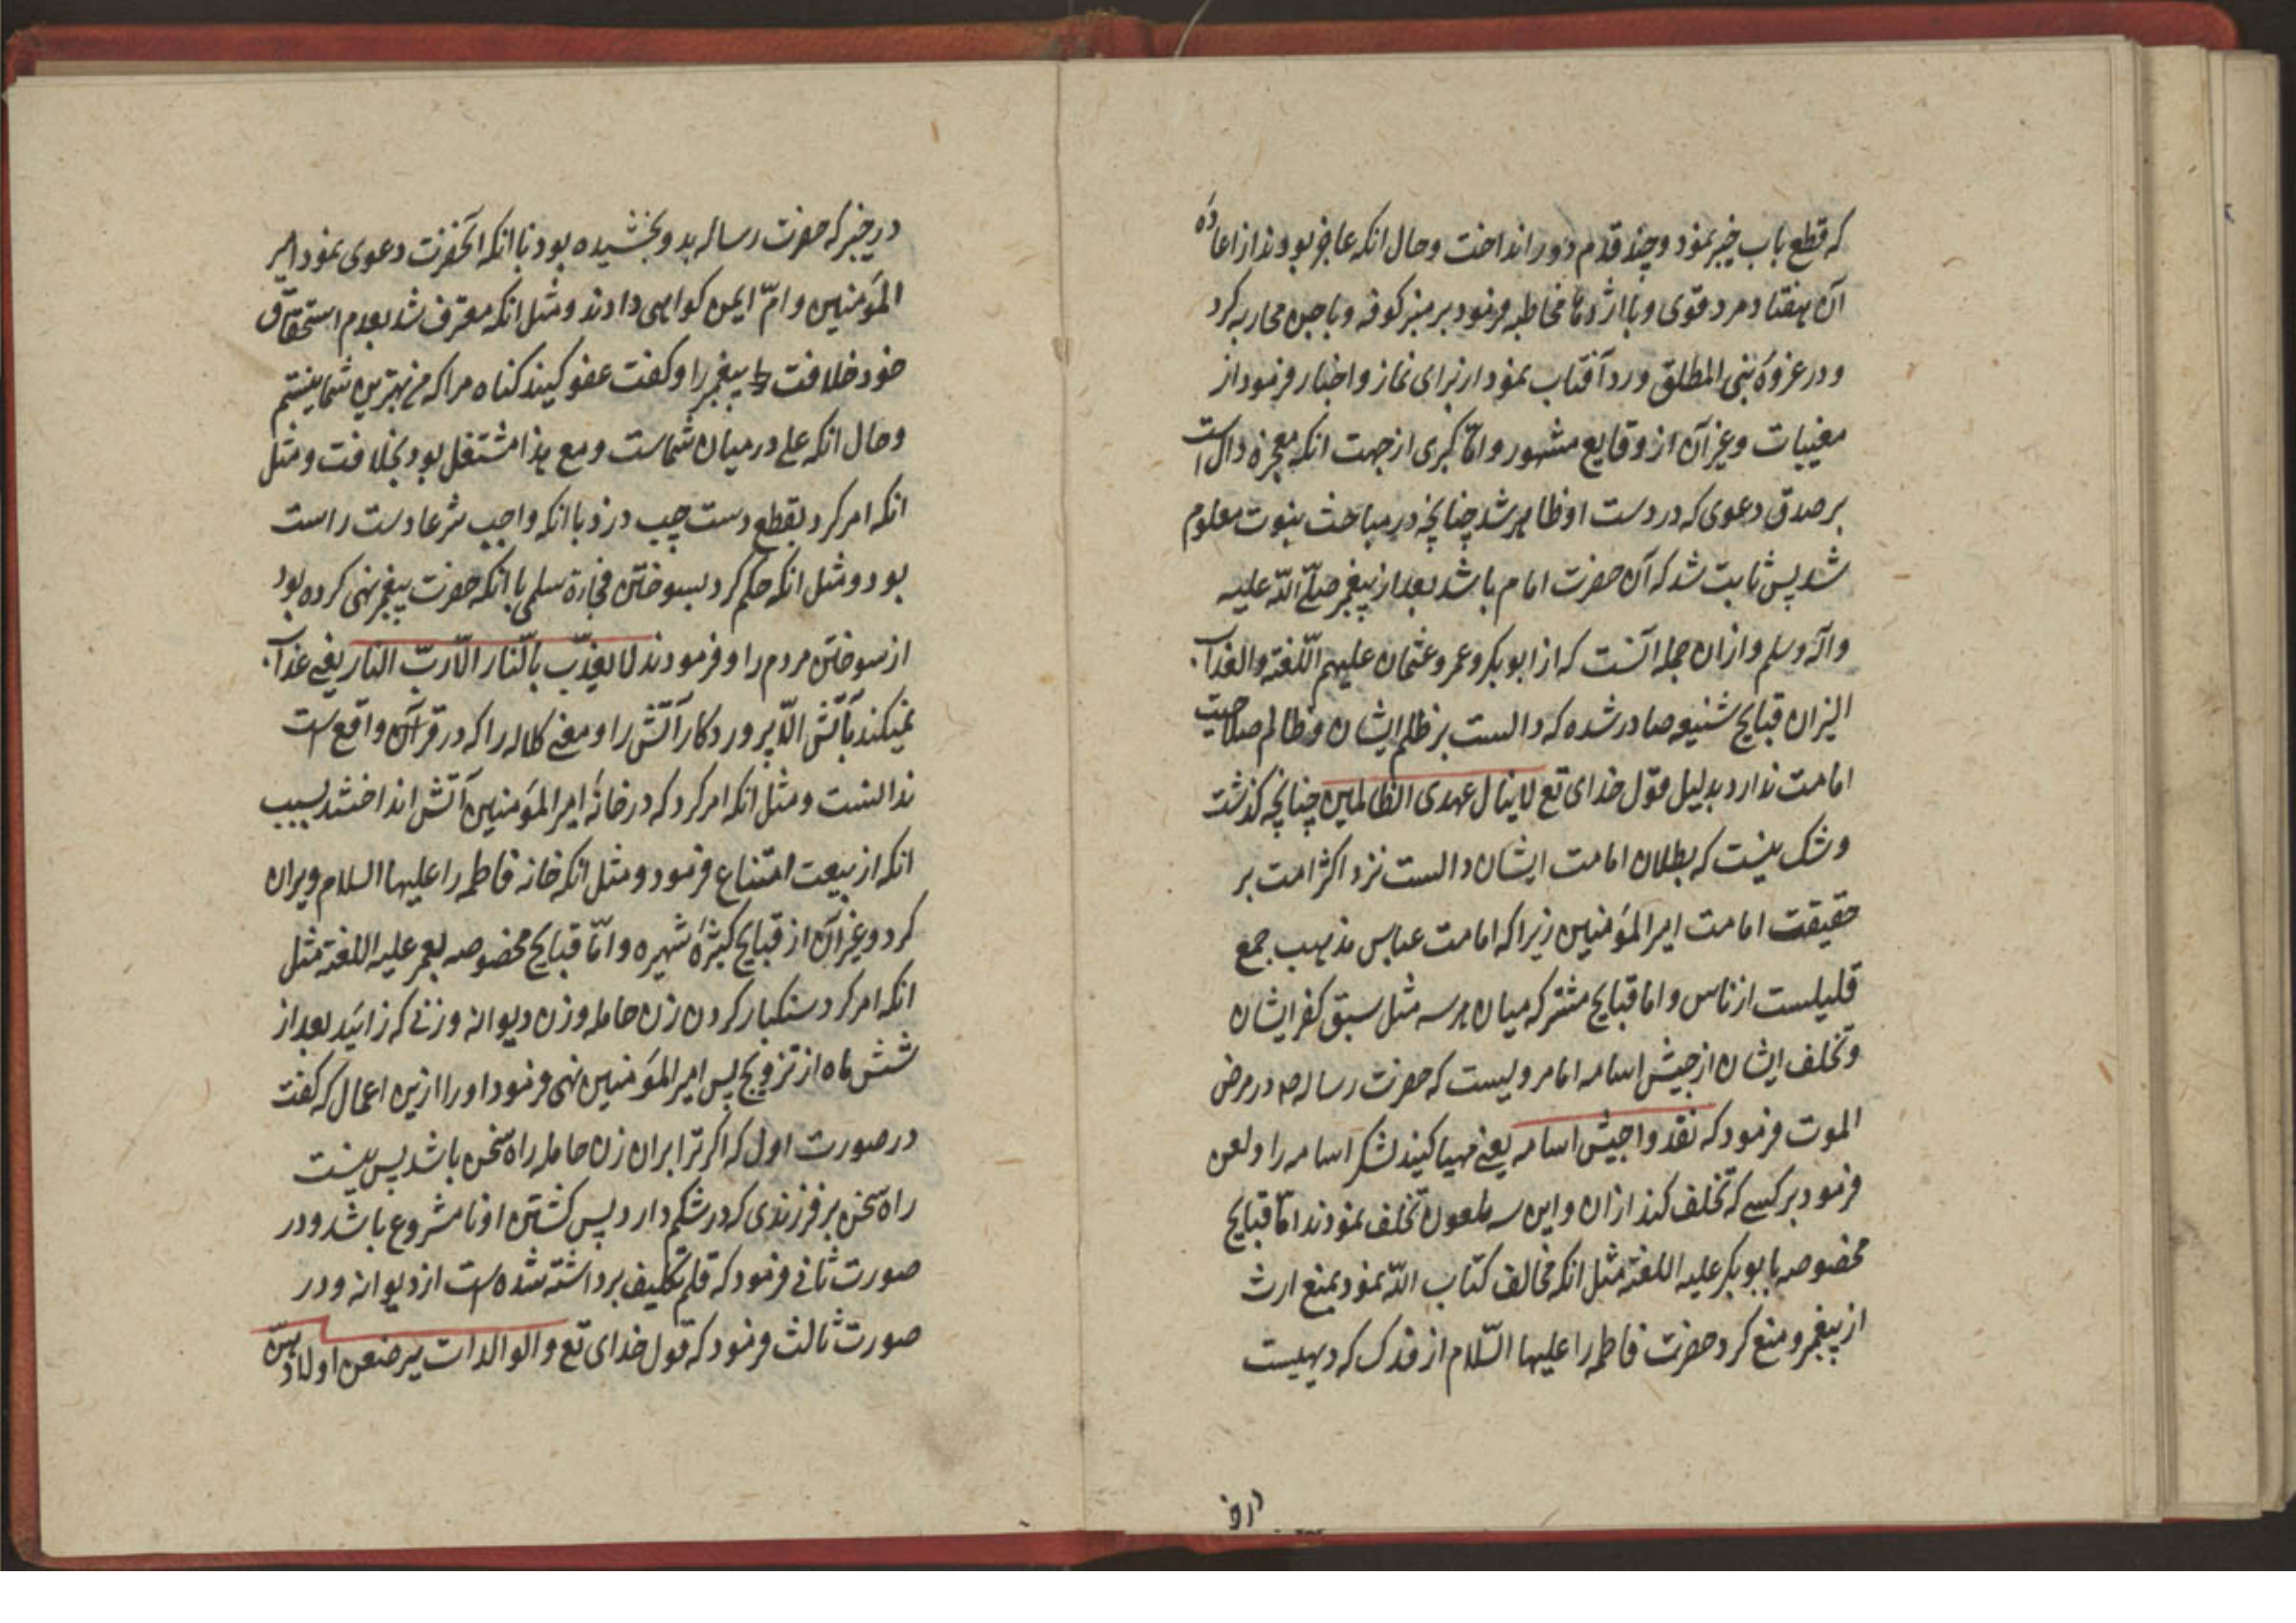 که قطع باب خیبر نمود و چند قدم دور انداخت و حال انکه عاجز بودند از اعاده
آن هفتاد مرد قوی و با اژدها مخاطبه فرمود بر منبر کوفه و با جن محاربه کرد
و در غزوهٔ بنی المطلق و رد آفتاب نمود از برای نماز و اخبار فرمود از
مغیبات و غیر آن از وقایع مشهور و امّا کبری از جهت انکه معجزه دال است
بر صدق دعوی که در دست او ظاهر شد چنانچه در مباحث نبوت معلوم
شد پس ثابت شد که آن حضرت امام باشد بعد از پیغمبر صلّی اللّه علیه
واله وسلم و از ان جمله آنست که از ابوبکر و عمر و عثمان علیهم اللّعنة والعذاب
الیزان قبایح شنیعه صادر شده که دالست بر ظلم ایشان و ظالم صلاحیت
امامت ندارد بدلیل قول خدای تع لا ینال عهدی الظالمین چنانچه کذشت
و شک نیست که بطلان امامت ایشان دالست نزد اکثر امت بر
حقیقت امامت امیر المؤمنین زیرا که امامت عباس مذهب جمع
قلیلست از ناس و اما قبایح مشترکه میان هر سه مثل سبق کفر ایشان
و تخلف ایشان از جیش اسامه اما مرویست که حضرت رساله ص در مرض
الموت فرمود که نفذوا جیش اسامه یعنی مهیا کنید لشکر اسامه را و لعن
فرمود بر کسی که تخلف کند از ان و این سه ملعون تخلف نمودند امّا قبایح
مخصوصه بابوبکر علیه اللعنة مثل انکه مخالف کتاب اللّه نمود بمنع ارث
از پیغمبر و منع کرد حضرت فاطمه را علیها السّلام از فدک که دهیست
در خیبر که حضرت رساله بدو بخشیده بود با انکه انحضرت دعوی نمود امیر
المؤمنین و امّ ایمن کواهی دادند و مثل انکه معترف شد بعدم استحقاق
خود خلافت پیغمبر را و کفت عفو کنید کناه مرا که من بهترین شما نیستم
و حال انکه علی در میان شماست و مع هذا مشتغل بود بخلافت و مثل
انکه امر کرد بقطع دست چپ دزد با انکه واجب شرعا دست راست
بود و مثل انکه حکم کرد بسوختن فجارة سلمی با انکه حضرت پیغمبر نهی کرده بود
از سوختن مردم را و فرمودند لا یعذّب بالنّار الّا ربّ النار یعنی عذاب
نمیکند بآتش الّا پروردکار آتش را و معنی کلاله را که در قرآن واقع است
ندانست و مثل انکه امر کرد که در خانهٔ امیر المؤمنین آتش انداختند بسبب
انکه از بیعت امتناع فرمود و مثل انکه خانه فاطمه را علیها السلام ویران
کرد و غیر آن از قبایح کثیرهٔ شهیره و امّا قبایح مخصوصه بعمر علیه اللعنة مثل
انکه امر کرد سنکسار کردن زن حامله و زن دیوانه و زنی که زائید بعد از
شش ماه از تزویج پس امیر المؤمنین نهی فرمود او را ازین اعمال که کفت
در صورت اول که اکر ترا بران زن حامله راه سخن باشد پس نیست
راه سخن بر فرزندی که در شکم دارد پس کشتن او نامشروع باشد و در
صورت ثانی فرمود که قلم تکلیف برداشته شده است از دیوانه و در
صورت ثالث فرمود که قول خدای تع والوالدات یرضعن اولادهنّ